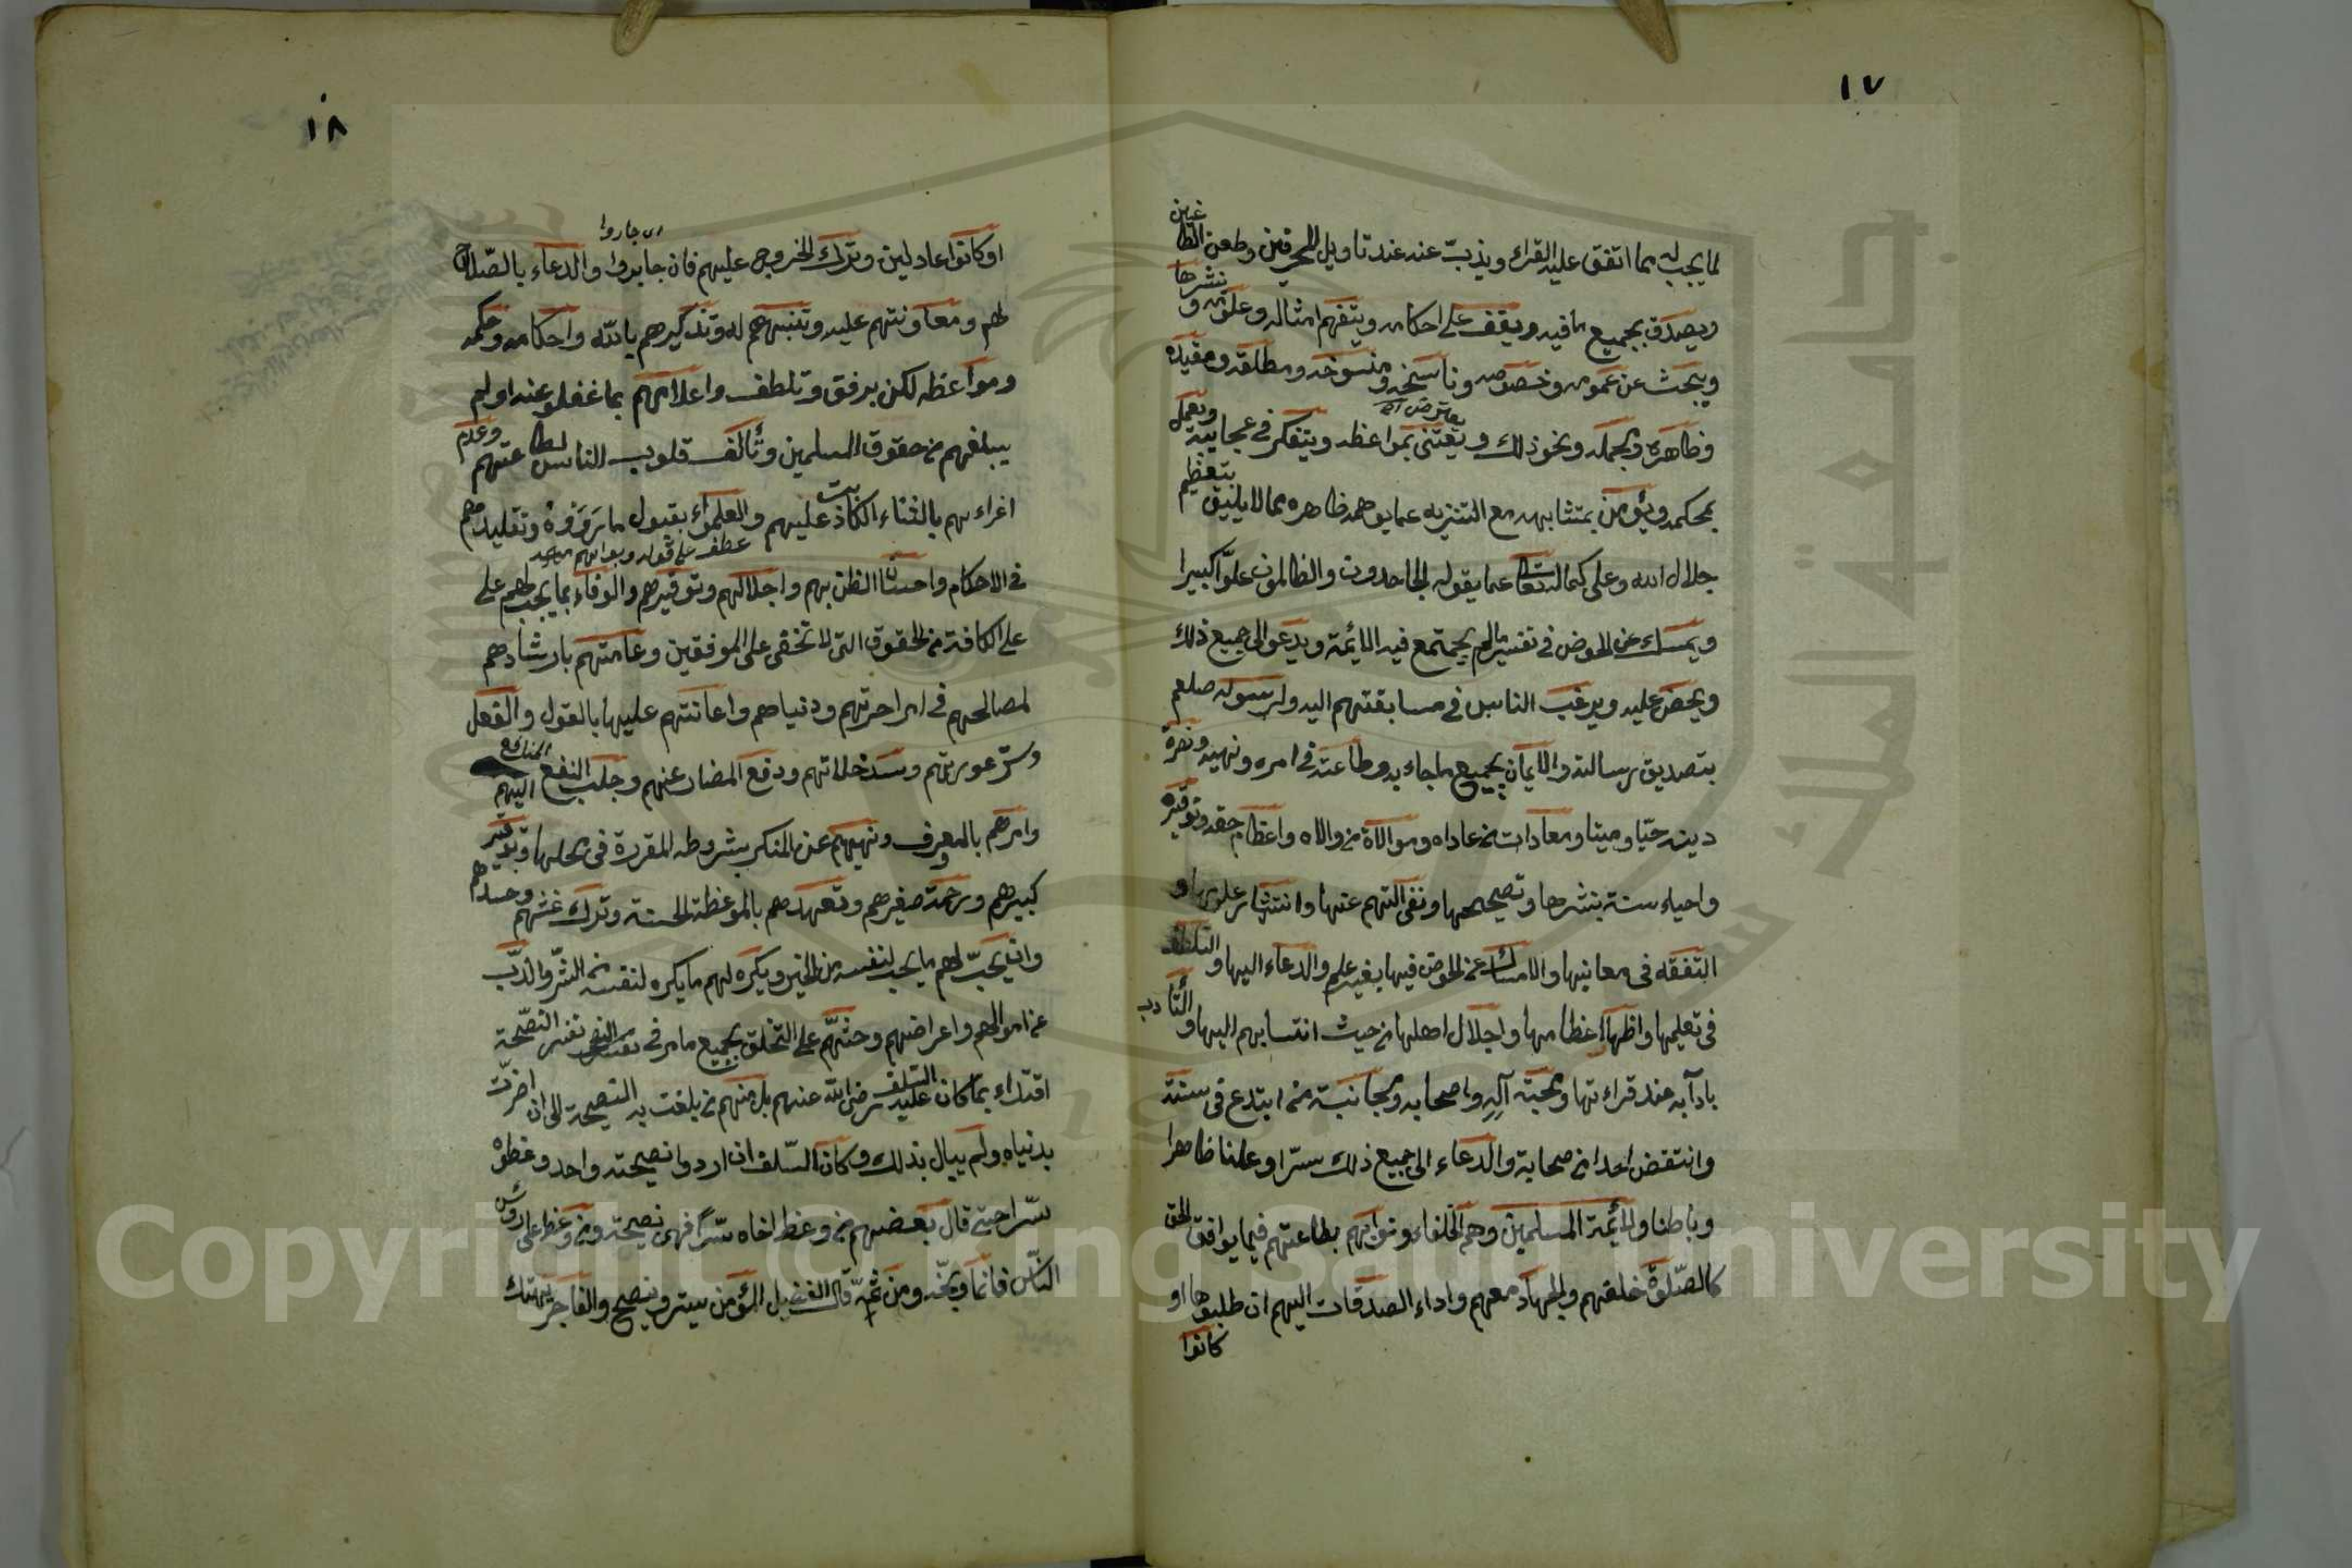 ١٧
لما يجب له مما اتفق عليه القراء ويذب عنه عند تاويل المحرفين وطعن الطاغين
ويصدق بجميع ما فيه ويقف على احكامه ويتفهم امثاله وعلومه و نشرها
ويبحث عن عمومه وخصوصه وناسخه ومنسوخه ومطلقه ومقيده
وظاهره ومجمله ونحو ذلك ويعتنى بمواعظه ويتفكر في عجايبه ويعمل
بمحكمه ويؤمن بمتشابهه مع التنزيه عما يوهمه ظاهره مما لا يليق بتعظيم
جلال الله وعلى كماله تعالى عما يقوله الجاحدون والظالمون علوّا كبيرا
ويمسك عن الخوض في تفسير مالم يجتمع فيه الايمة ويدعو الى جميع ذلك
ويحض عليه ويرغب الناس في مسابقتهم اليه ولرسوله صلعم
بتصديق رسالته والايمان بجميع ما جاء به وطاعته في امره ونهيه ونصرة
دينه حيّا وميتا ومعادات من عاداه وموالاة من والاه واعظام حقه وتوقيره
واحياء سنته بنشرها وتصحيحها ونفى التهم عنها وانتشار علومها و
التفقه في معانيها والامساك عن الخوض فيها بغير علم والدعاء اليها والتلطف
في تعليمها واظهار اعظامها واجلال اهلها من حيث انتسابهم اليها والتأدب
بادآبه عند قراءتها ومحبته آله واصحابه ومجانبة من ابتدع في سنته
وانتقض احدا من صحابة والدعاء الى جميع ذلك سرّا وعلنا ظاهرا
وباطنا ولائمة المسلمين وهم الخلفاء ونوابهم بطاعتهم فيما يوافق الحق
كالصّلوة خلفهم والجهاد معهم واداء الصدقات اليهم ان طلبوها او
كانوا
١٨
جاروا
او كانوا عادلين وترك الخروج عليهم فان والدعاء بالصّلاح
لهم ومعاونتهم عليه وتنبيههم له وتذكيرهم بالله واحكامه وحكمه
ومواعظه لكن برفق وتلطف واعلامهم بما غفلو عنه او لم
يبلغهم من حقوق المسلمين وتألف قلوب الناس لطاعتهم وعدم
اغراءهم بالثناء الكاذب عليهم والعلماء بقبول ما وتقليدهم
عطف على قوله
في الاحكام واحسان الظن بهم واجلالهم وتوقيرهم والوفاء بما يجب لهم على
على الكافة من الحقوق التى لا تخفى على الموفقين وعامتهم بارشادهم
لمصالحهم في امر اخرتهم ودنياهم واعانتهم عليها بالقول والفعل
وستر عورتهم وسد خللاتهم ودفع المضار عنهم وجلب النفع المنافع اليهم
وامرهم بالمعروف ونهيهم عن المنكر بشروطه المقررة في محلها وتوقير
كبيرهم ورحمة صغيرهم وتعهدهم بالموعظة الحسنة وترك غشهم وحسدهم
وان يحبّ لهم ما يحب لنفسه من الخير ويكره لهم ما يكره لنفسه من الشرّ والذبّ
عن اموالهم واعراضهم وحثّهم على التخلق بجميع ما مر في تفسير النصيحة
اقتداء بما كان عليه السلف رضى الله عنهم بل منهم من بلغت به النصيحة الى ان اضرّت
بدنياه ولم يبال بذلك وكان السّلف ان اردوا نصيحته واحد وعظوه
سّرا حتى قال بعضهم من وعظ اخاه سّرا فهى نصيحة ومن وعظه على رؤس
النّاس فانما وبّخه ومن ثمّه قال الفضيل المؤمن يستر وينصح والفاجر يهتك